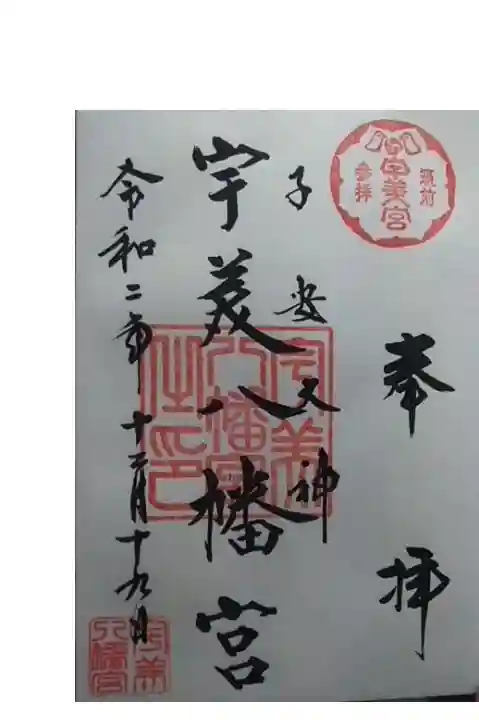 筑前
宇美宮
参拝
奉拝
子安大神
宇美八幡宮
宇美八幡宮之印
令和二年十二月十九日
宇美八幡宮